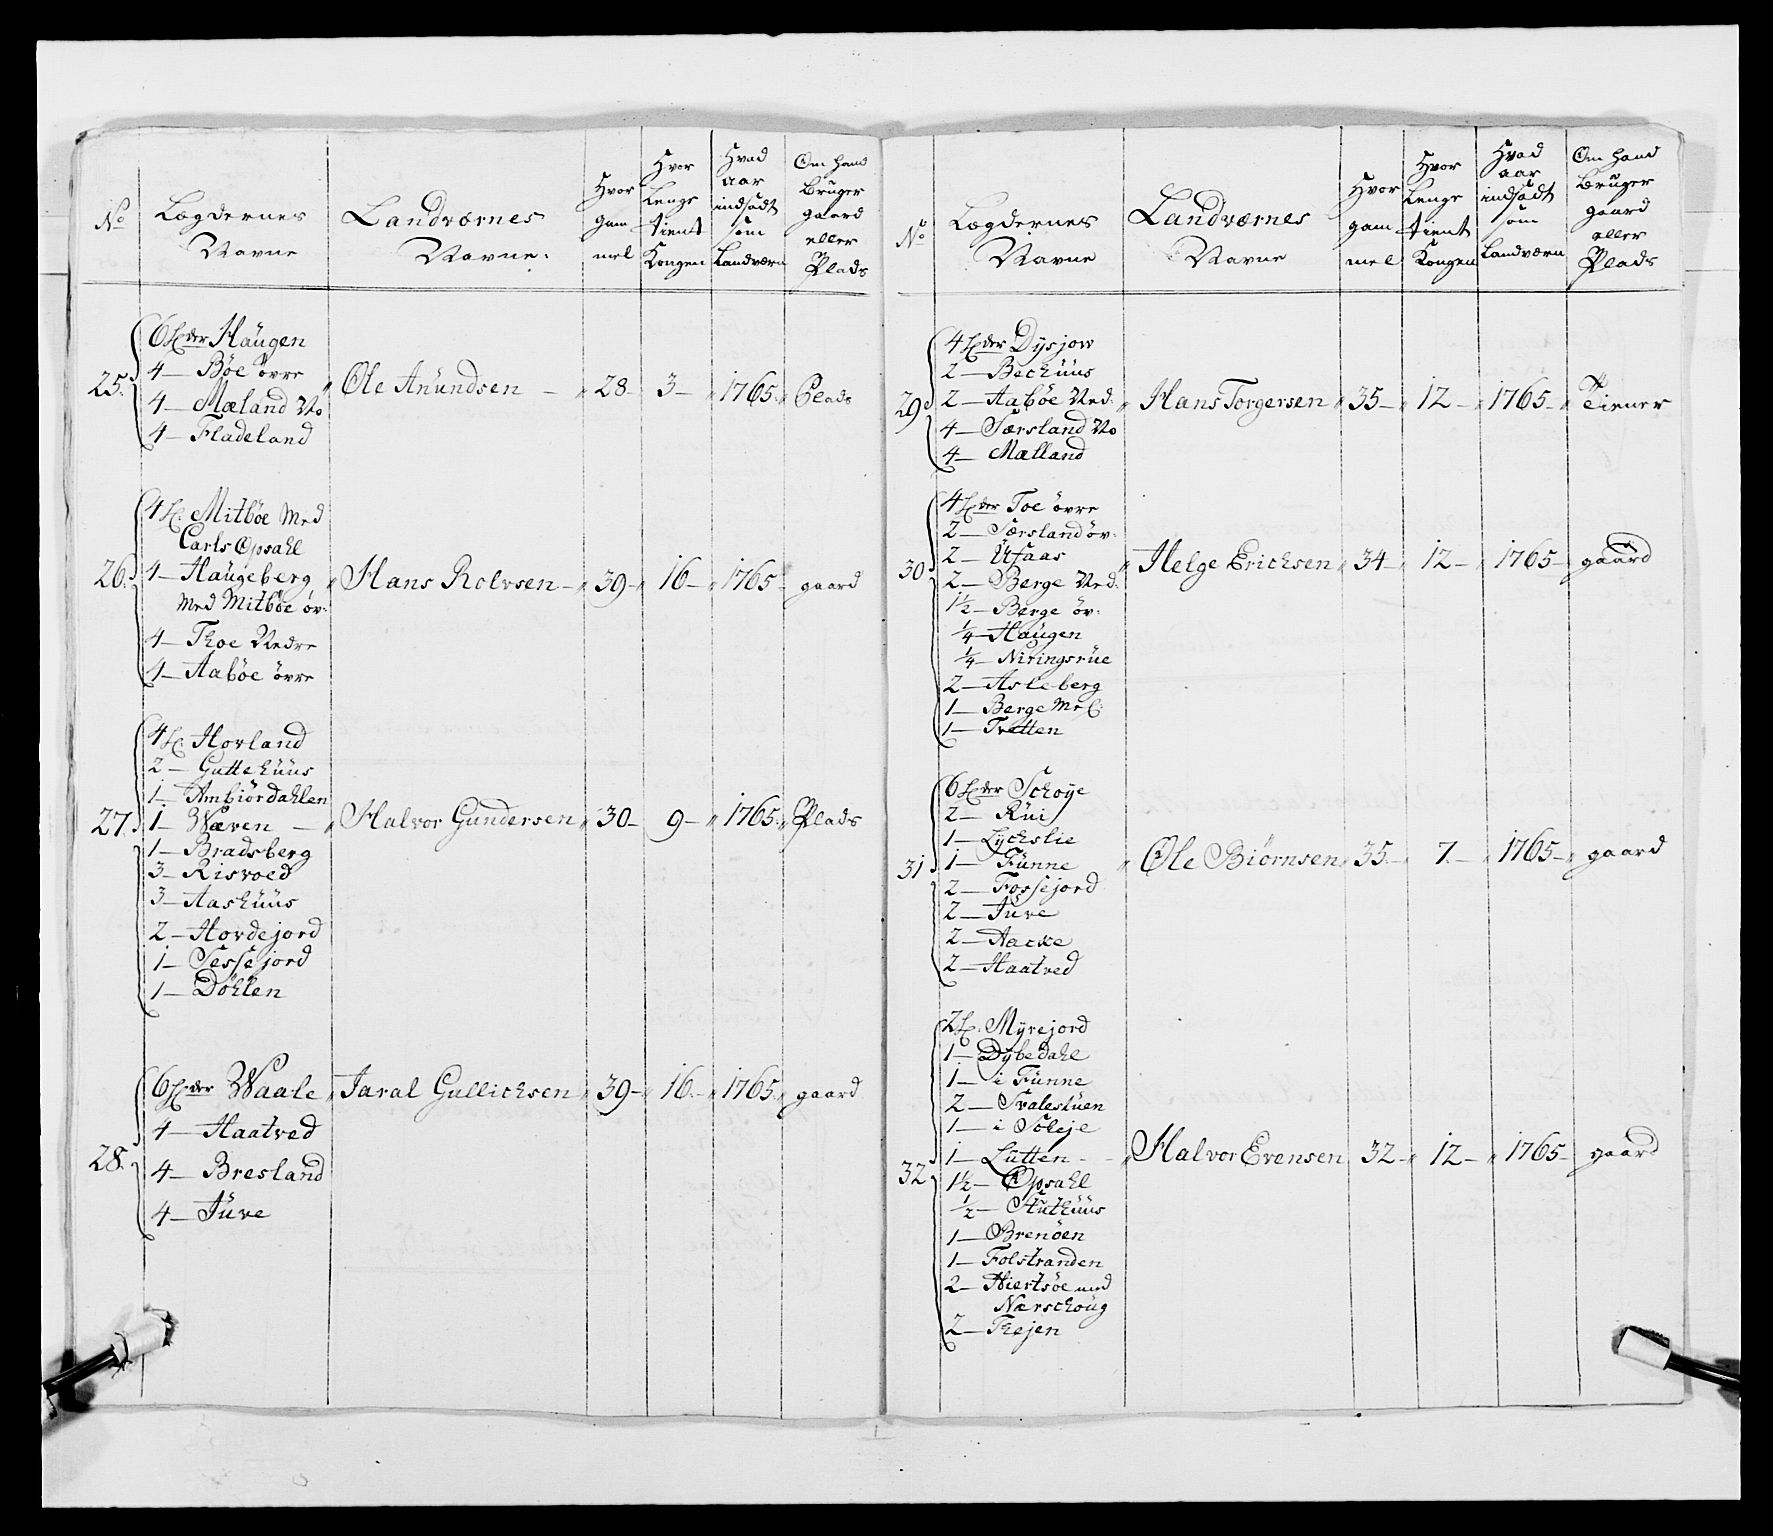 No
Lægdernes
Navne
Landværnes
Navne.
Hvor
gam
mel
Hvor
Lenge
tient
Kongen
Hvad
aar
indsadt
som
Landværn
Om hand
Bruger
gaard
eller
Plads
25.
6 Lder Haugen
4 — Bøe øvre
4 — Mæland No
4 — Fladeland
Ole Anundsen — 28. 3 — 1765. Plads
26.
4 L. Mitbøe Med
Carls Opsahl
4 — Haugeberg
Med Mitbøe øv.
4 — Thoe Nedre
4 — Aabøe øvre
Hans Rolvsen — 39 — 16 — 1765 gaard
27.
4 L. Hovland
2 — Guttehuus
1 — Ambiørdahlen
1 — Wæren —
1 — Bradsberg
3 — Risvoed
3 — Aashuus
2 — Hovdejord
1 — Sessejord
1 — Døhlen
Halvor Gundersen 30 — 9 — 1765. Plads
28.
6 Lder Waale
4 — Haatved
4 — Bresland
4 — Juve
Jaral Gullichsen 39 — 16. — 1765. gaard
No
Lægdernes
Navne
Landværnes
Navne
Hvor
gam
mel
Hvor
Lenge
tient
Kongen
Hvad
aar
indsadt
som
Landværn
Om hand
Bruger
gaard
eller
Plads
29
4 Lder Dysjow
2 — Bechuus
2 — Aabøe Ned.
4 — Særsland No
4 — Mælland
Hans Torgersen 35 — 12 — 1765 — Tiener
30
4 Lder Toe øvre
2 — Særsland øv.
2 — Ufaas
2 — Berge Ned.
1½ — Berge øv.
¼ — Haugen
¼ — Niringsrue
2 — Asleberg
1 — Berge
1 — Tvetten
Helge Erichsen 34 — 12 — 1765 — gaard
31
6 Lder Schoye
2 — Rui
1 — Lychslie
1 — Funne
2 — Fossejord
2 — Juve
2 — Aacke
2 — Haatved
Ole Biørnsen 35 — 7. — 1765 — gaard
32
2 L. Myrejord
1 — Dybedahl
1 — i Funne
2 — Svalestuen
1 — i Soleje
1 — Lutten —
1½ — Opsahl
½ — Stuthuus
1 — Brenøen
1 — Folstranden
2 — Hiertsøe med
Nærschoug
2 — Thejen
Halvor Evensen 32 — 12 — 1765 — gaard